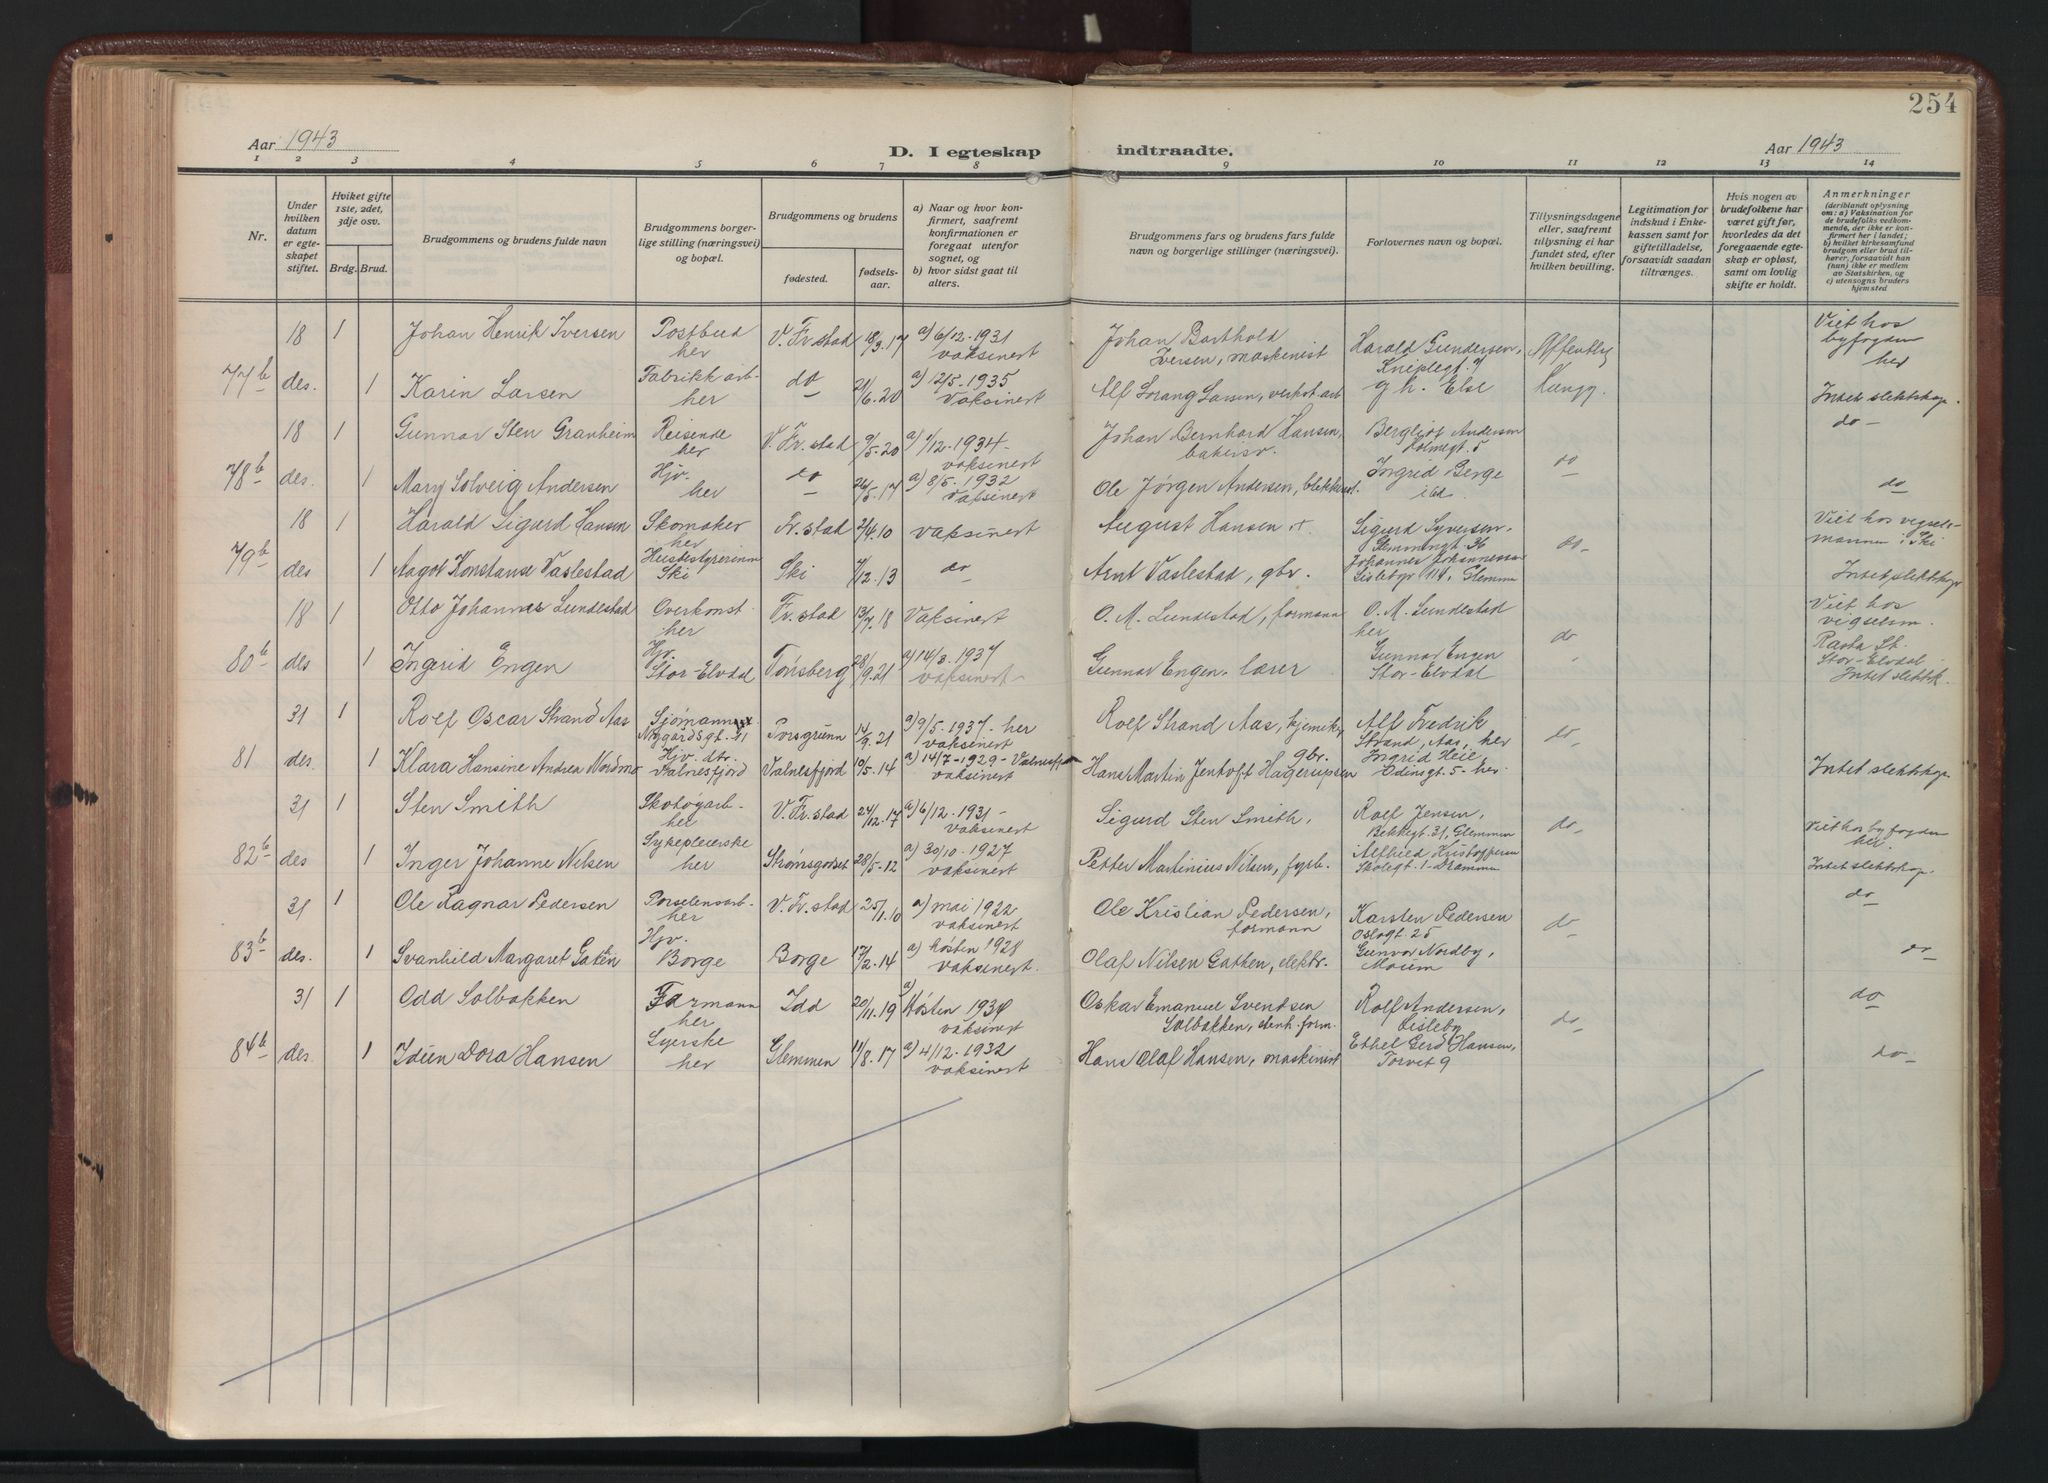 254
Aar 1943
D. I egteskap
indtraadte.
Aar 1943
1 2 3 4 5 6 7 8 9 10 11 12 13 14
Nr.
Under
hvilken
datum
er egte-
skapet
stiftet.
Hviket gifte
1ste, 2det,
3dje osv.
Brdg. Brud.
Brudgommens og brudens fulde navn
Brudgommens borger-
lige stilling (næringsvei)
og bopæl.
Brudgommens og brudens
fødested.
fødsels-
aar.
a) Naar og hvor kon-
firmert, saafremt
konfirmationen er
foregaat utenfor
sognet, og
b) hvor sidst gaat til
alters.
Brudgommens fars og brudens fars fulde
navn og borgerlige stillinger (næringsvei).
Forlovernes navn og bopæl.
Tillysningsdagene
eller, saafremt
tillysning ei har
fundet sted, efter
hvilken bevilling.
Legitimation for
indskud i Enke-
kassen samt for
giftetilladelse,
forsaavidt saadan
tiltrænges.
Hvis nogen av
brudefolkene har
været gift før,
hvorledes da det
foregaaende egte-
skap er opløst,
samt om lovlig
skifte er holdt.
Anmerkninger
(deriblandt oplysning
om: a) Vaksination for
de brudefolks vedkom-
mende, der ikke er kon-
firmert her i landet;
b) hvilket kirkesamfund
brudgom eller brud til-
hører, forsaavidt han
(hun) ikke er medlem
av Statskirken, og
c) utensogns bruders
hjemsted
18 1 Johan Henrik Iversen Postbud her V. Fr.stad 18/3.17 a) 6/12-1931 vaksinert Johan Barthold Iversen, maskinist Harald Gundersen, Knipleg t. 7 Offentlig Viet hos byfogden her
77b des. 1 Karin Larsen Fabrikkarb- her do 21/6.20 a) 12/5-1935 Vaksinert Alf Sorang Larsen, verkst.arb Else Intet slektskap.
18 1 Gunnar Sten Granheim Reisende her V. Fr.stad 9/5.20 a) 1/12-1934- vaksinert Johan Bernhard Hansen, bakersv. Bergliot Andersen 5 do-
78b des. 1 Mary Solveig Andersen Hjv. her do 26/5.17 a) 8/5-1932 Vaksinert Ole Jørgen Andersen, Ingrid Gerge ibd. do do
18 1 Harald Sigurd Hansen Skomaker her Fr.stad 2/4.10 vaksinert August Hansen Sigurd Syversen. Glemmengt. 36 Viet hos vigsels- mannen i Ski
79b des 1 Aagot Konstanse Vaslestad Husbestyrerinne Ski Ski 7/12.13 do Arnt Vaslestad, gbr. Johannes Johannessen Lislebyv 114, Glemmen do- Intet slektskap
18 1 Otto Johannes Lundestad Overkonst. her Fr.stad 13/7.18 Vaksinert O. M. Lundestad, formann O. M. Lundestad her Viet hos vigselsm.
80b des 1 Ingrid Engen Hjv. Stor-Elvdal Tønsberg 28/9.21 a) 14/3.1937 vaksinert Gunnar Engen. lærer Gunnar Engen Stor-Elvdal do Rasta St. Stor-Elvdal Intet slektsk.
31 1 Rolf Oscar Strand Aas Sjømann Nygårdsgt. Porsgrunn 14/9.21 a) 9/5-1937- her vaksinert Rolf Strand Aas, kjemiker Alf Fredrik Strand, Aas, her do-
81 des. 1 Klara Hansine Andrea Nordmo Hjv. dtr. Valnesfjord Valnesfjord 10/5.14 a) 14/7-1929- Valnesfjord vaksinert Hans Martin Jentoft Hagerupsen gbr. Ingrid Heie Odinsgt. 5- her Intet slektskap
31 1 Sten Smith Skotøyarb- her V. Fr.stad 24/12.17 a) 6/12.1931- Vaksinert Sigurd Sten Smith, Rolf Jensen, Bekkegt. 31, Glemmen do- Viet hos byfogden her.
82b des 1 Inger Johanne Nilsen Sykepleierske her Strømsgodset 28/5-12 a) 30/10-1927 vaksinert Petter Martinius Nilsen, fyrb. Alfhild Kristoffersen Skolegt. 1- Drammen Intet slektskap.
31 1 Ole Ragnar Pedersen Porselensarb- her V. Fr.stad 25/1.10 a) mai 1922 vaksinert Ole Kristian Pedersen, formann Karsten Pedersen Oslogt. 25 do do
83b des. 1 Svanhild Margaret Gatén Hjv. Borge Borge 17/2.14 a) høsten 1928 vaksinert. Olaf Nilsen Gathen, elektr. Gunvor Nordby, Moum do
31 1 Odd Solbakken Formann her Idd 20/11.19 a) Høsten 1934 vaksinert Oskar Emanuel Svendsen Solbakken, stenh.form. Rolf Andersen, Lisleby do do
84b des. 1 Iduen Dora Hansen Syerske her Glemmen 11/8.17 a) 4/12-1932 vaksinert Hans Olaf Hansen, maskinist Ethel Gerd Hansen, Torvet 9 do-